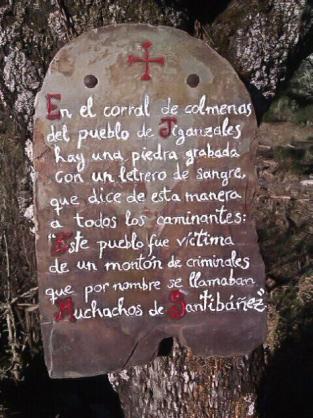 En el corral de colmenas
del pueblo de Jiganzales
hay una piedra grabada
con un letrero de sangre,
que dice de esta manera
a todos los caminantes:
"Este pueblo fue víctima
de un montón de criminales
que por nombre se llamaban
Muchachos de Santibáñez"